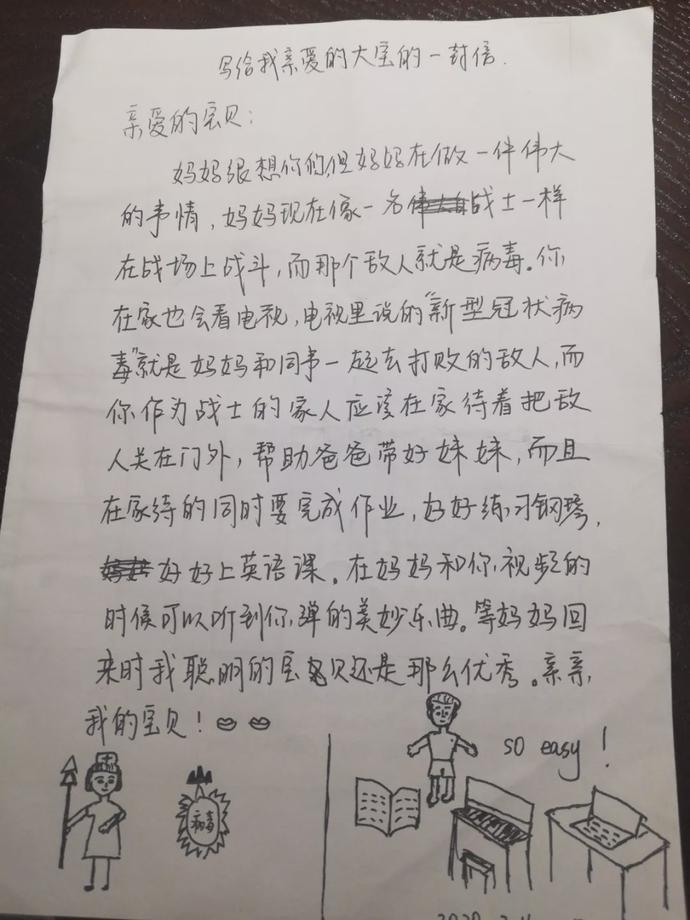 写给我亲爱的大宝的一封信.
亲爱的宝贝:
妈妈很想你的,但妈妈在做一件伟大
的事情，妈妈现在像一名战士一样
在战场上战斗，而那个敌人就是病毒。你
在家也会看电视，电视里说的“新型冠状病
毒”就是妈妈和同事一起去打败的敌人，而
你作为战士的家人应该在家待着把敌
人关在门外，帮助爸爸带好妹妹，而且
在家待的同时要完成作业，好好练习钢琴，
好好上英语课。在妈妈和你视频的
时候可以听到你弹的美妙乐曲。等妈妈回
来时我聪明的宝贝还是那么优秀。亲亲，
我的宝贝！
so easy!
病毒